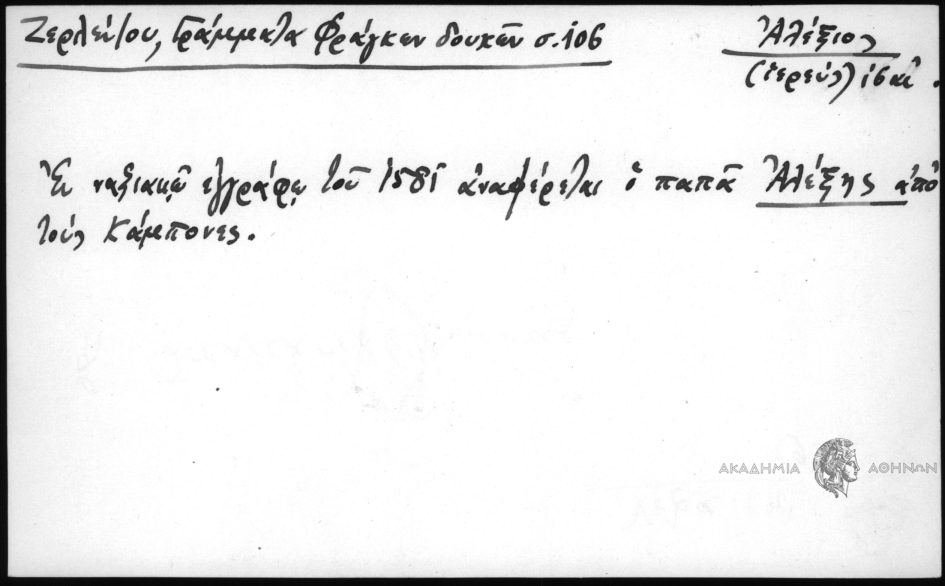 Ζερλέντου, Γράμματα Φράγκων δουκῶν σ. 106
Ἀλέξιος
(ἱερεύς) ις αἰ.
Ἐν ναξιακῷ ἐγγράφῳ τοῦ 1581 ἀναφέρεται ὁ παπᾶ Ἀλέξης ἀπὸ
τοὺς Κάμπονες.
ΑΚΑΔΗΜΙΑ ΑΘΗΝΩΝ